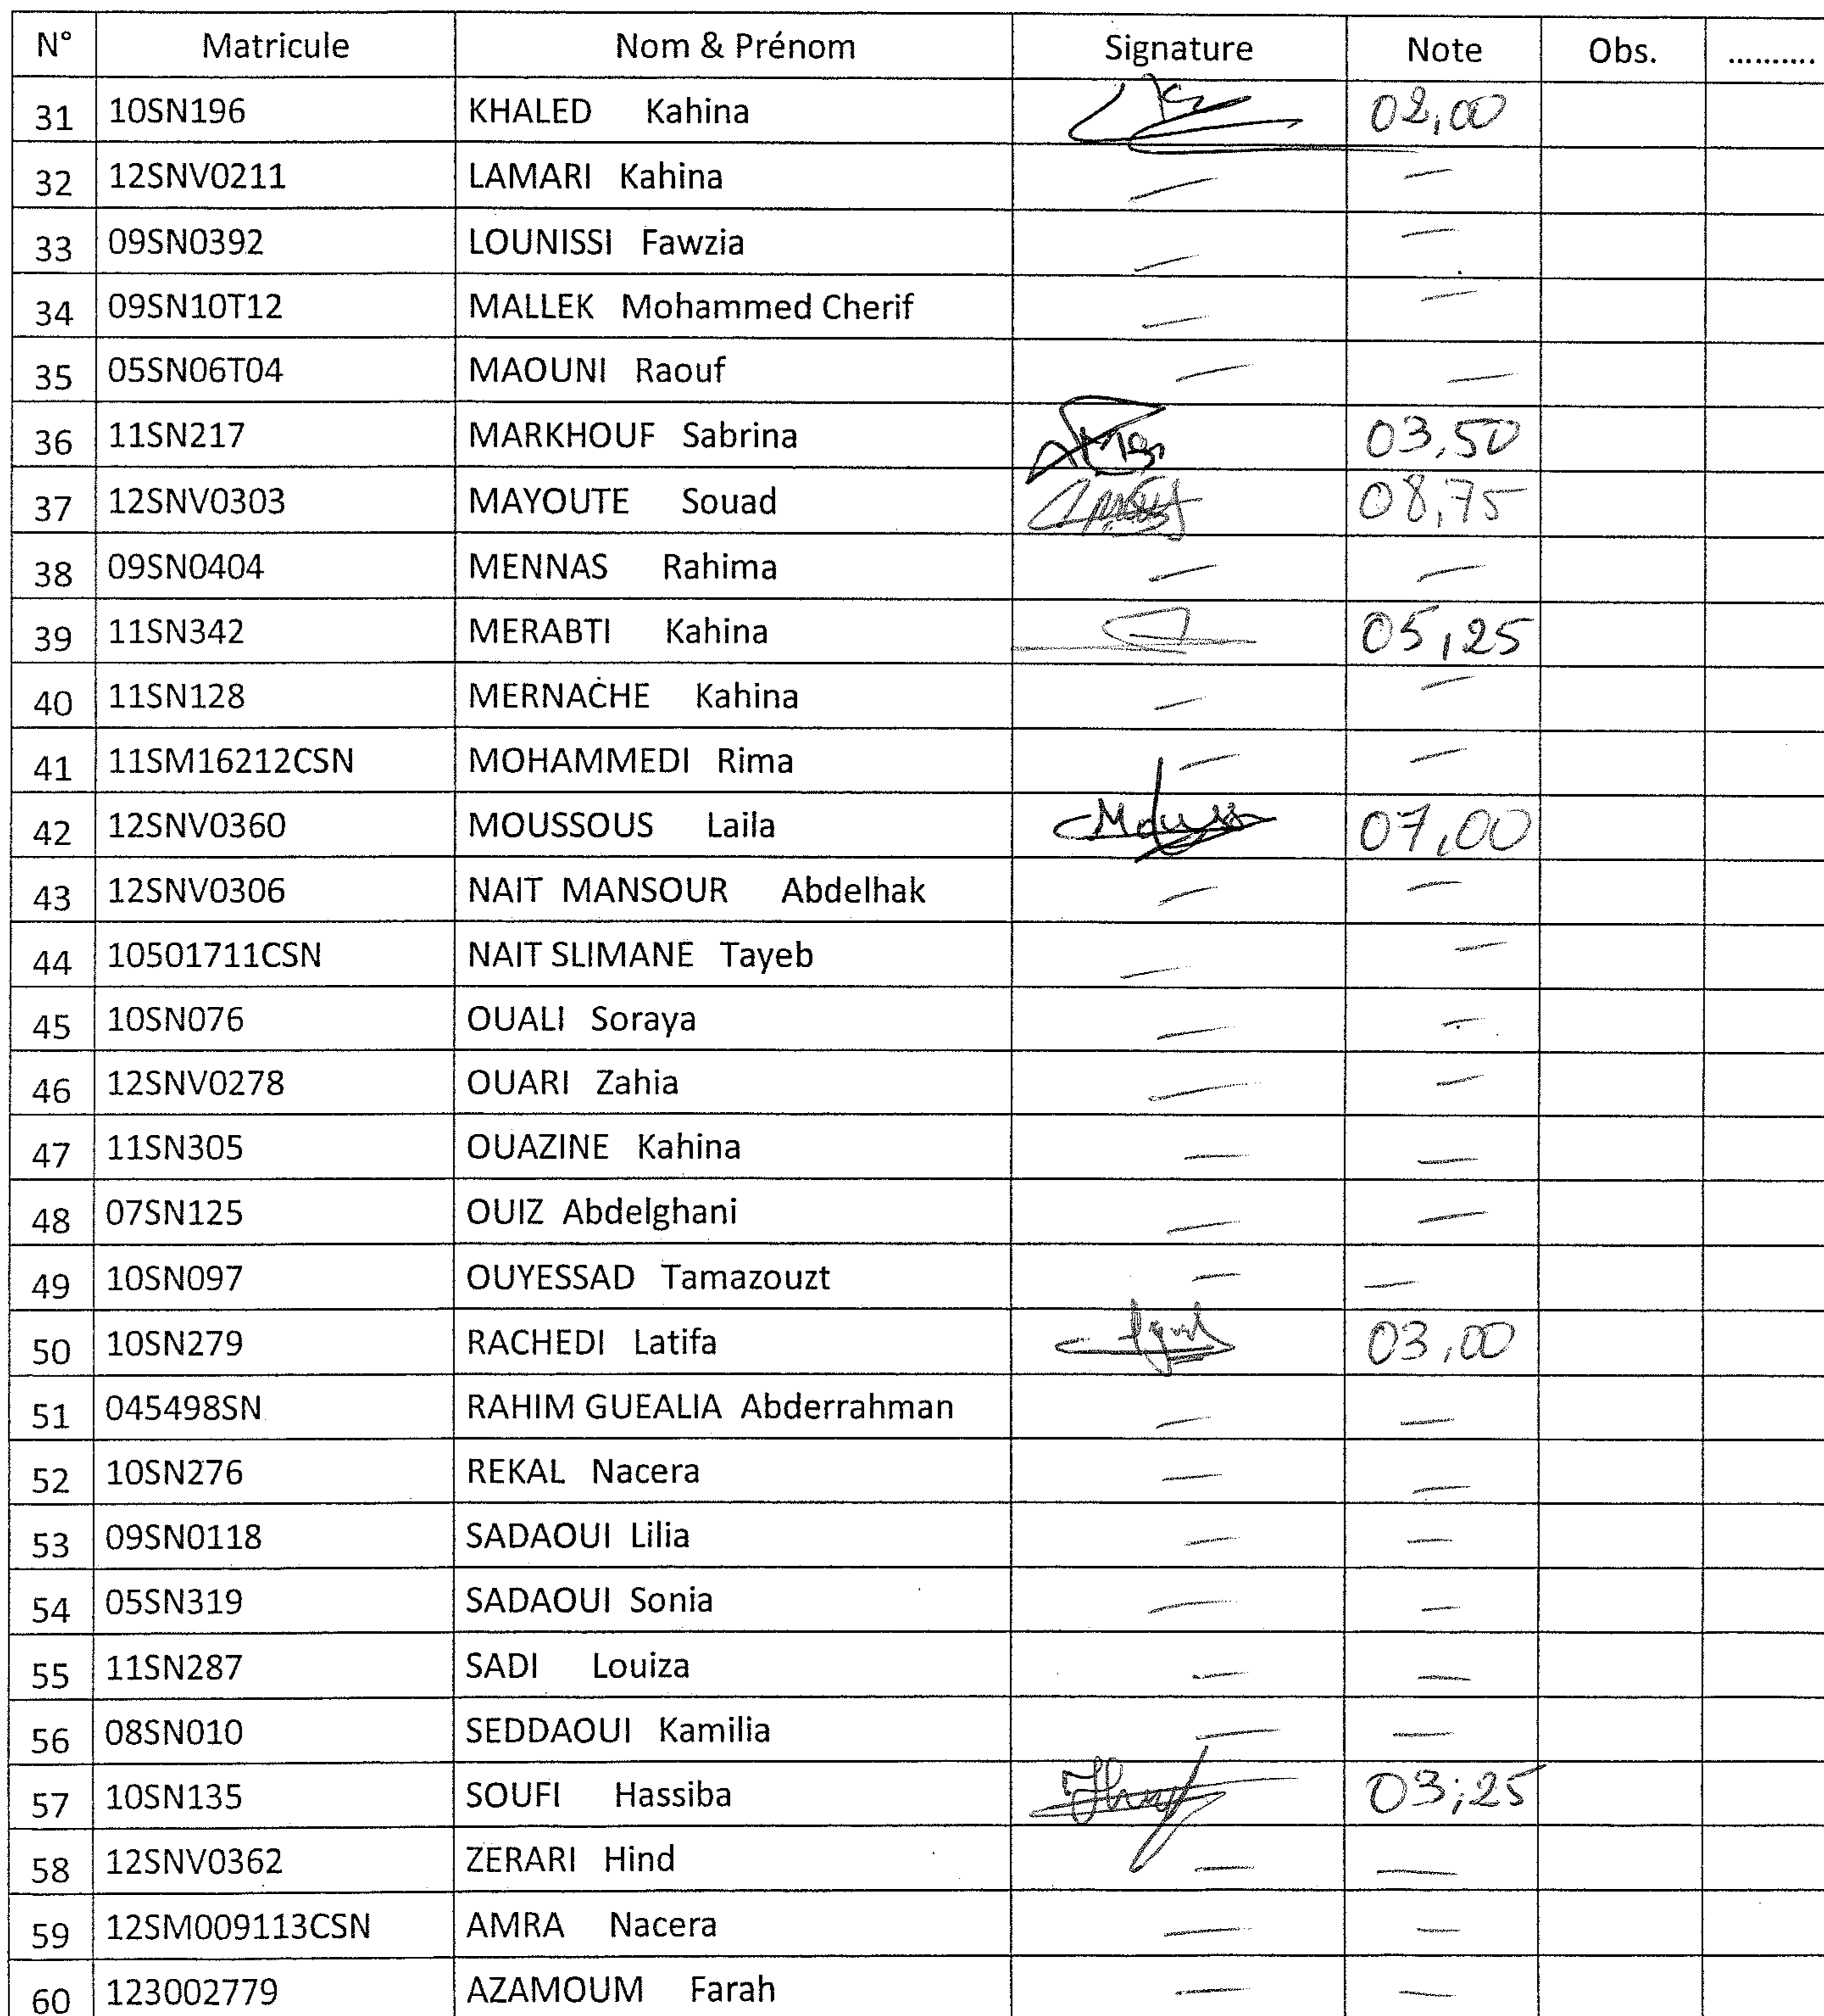 N° Matricule Nom & Prénom Signature Note Obs. ..........
31 10SN196 KHALED Kahina 02,00
32 12SNV0211 LAMARI Kahina — —
33 09SN0392 LOUNISSI Fawzia — —
34 09SN10T12 MALLEK Mohammed Cherif — —
35 05SN06T04 MAOUNI Raouf — —
36 11SN217 MARKHOUF Sabrina 03,50
37 12SNV0303 MAYOUTE Souad 08,75
38 09SN0404 MENNAS Rahima — —
39 11SN342 MERABTI Kahina 05,25
40 11SN128 MERNACHE Kahina — —
41 11SM16212CSN MOHAMMEDI Rima — —
42 12SNV0360 MOUSSOUS Laila 07,00
43 12SNV0306 NAIT MANSOUR Abdelhak — —
44 10501711CSN NAIT SLIMANE Tayeb — —
45 10SN076 OUALI Soraya — —
46 12SNV0278 OUARI Zahia — —
47 11SN305 OUAZINE Kahina — —
48 07SN125 OUIZ Abdelghani — —
49 10SN097 OUYESSAD Tamazouzt — —
50 10SN279 RACHEDI Latifa 03,00
51 045498SN RAHIM GUEALIA Abderrahman — —
52 10SN276 REKAL Nacera — —
53 09SN0118 SADAOUI Lilia — —
54 05SN319 SADAOUI Sonia — —
55 11SN287 SADI Louiza — —
56 08SN010 SEDDAOUI Kamilia — —
57 10SN135 SOUFI Hassiba 03;25
58 12SNV0362 ZERARI Hind — —
59 12SM009113CSN AMRA Nacera — —
60 123002779 AZAMOUM Farah — —